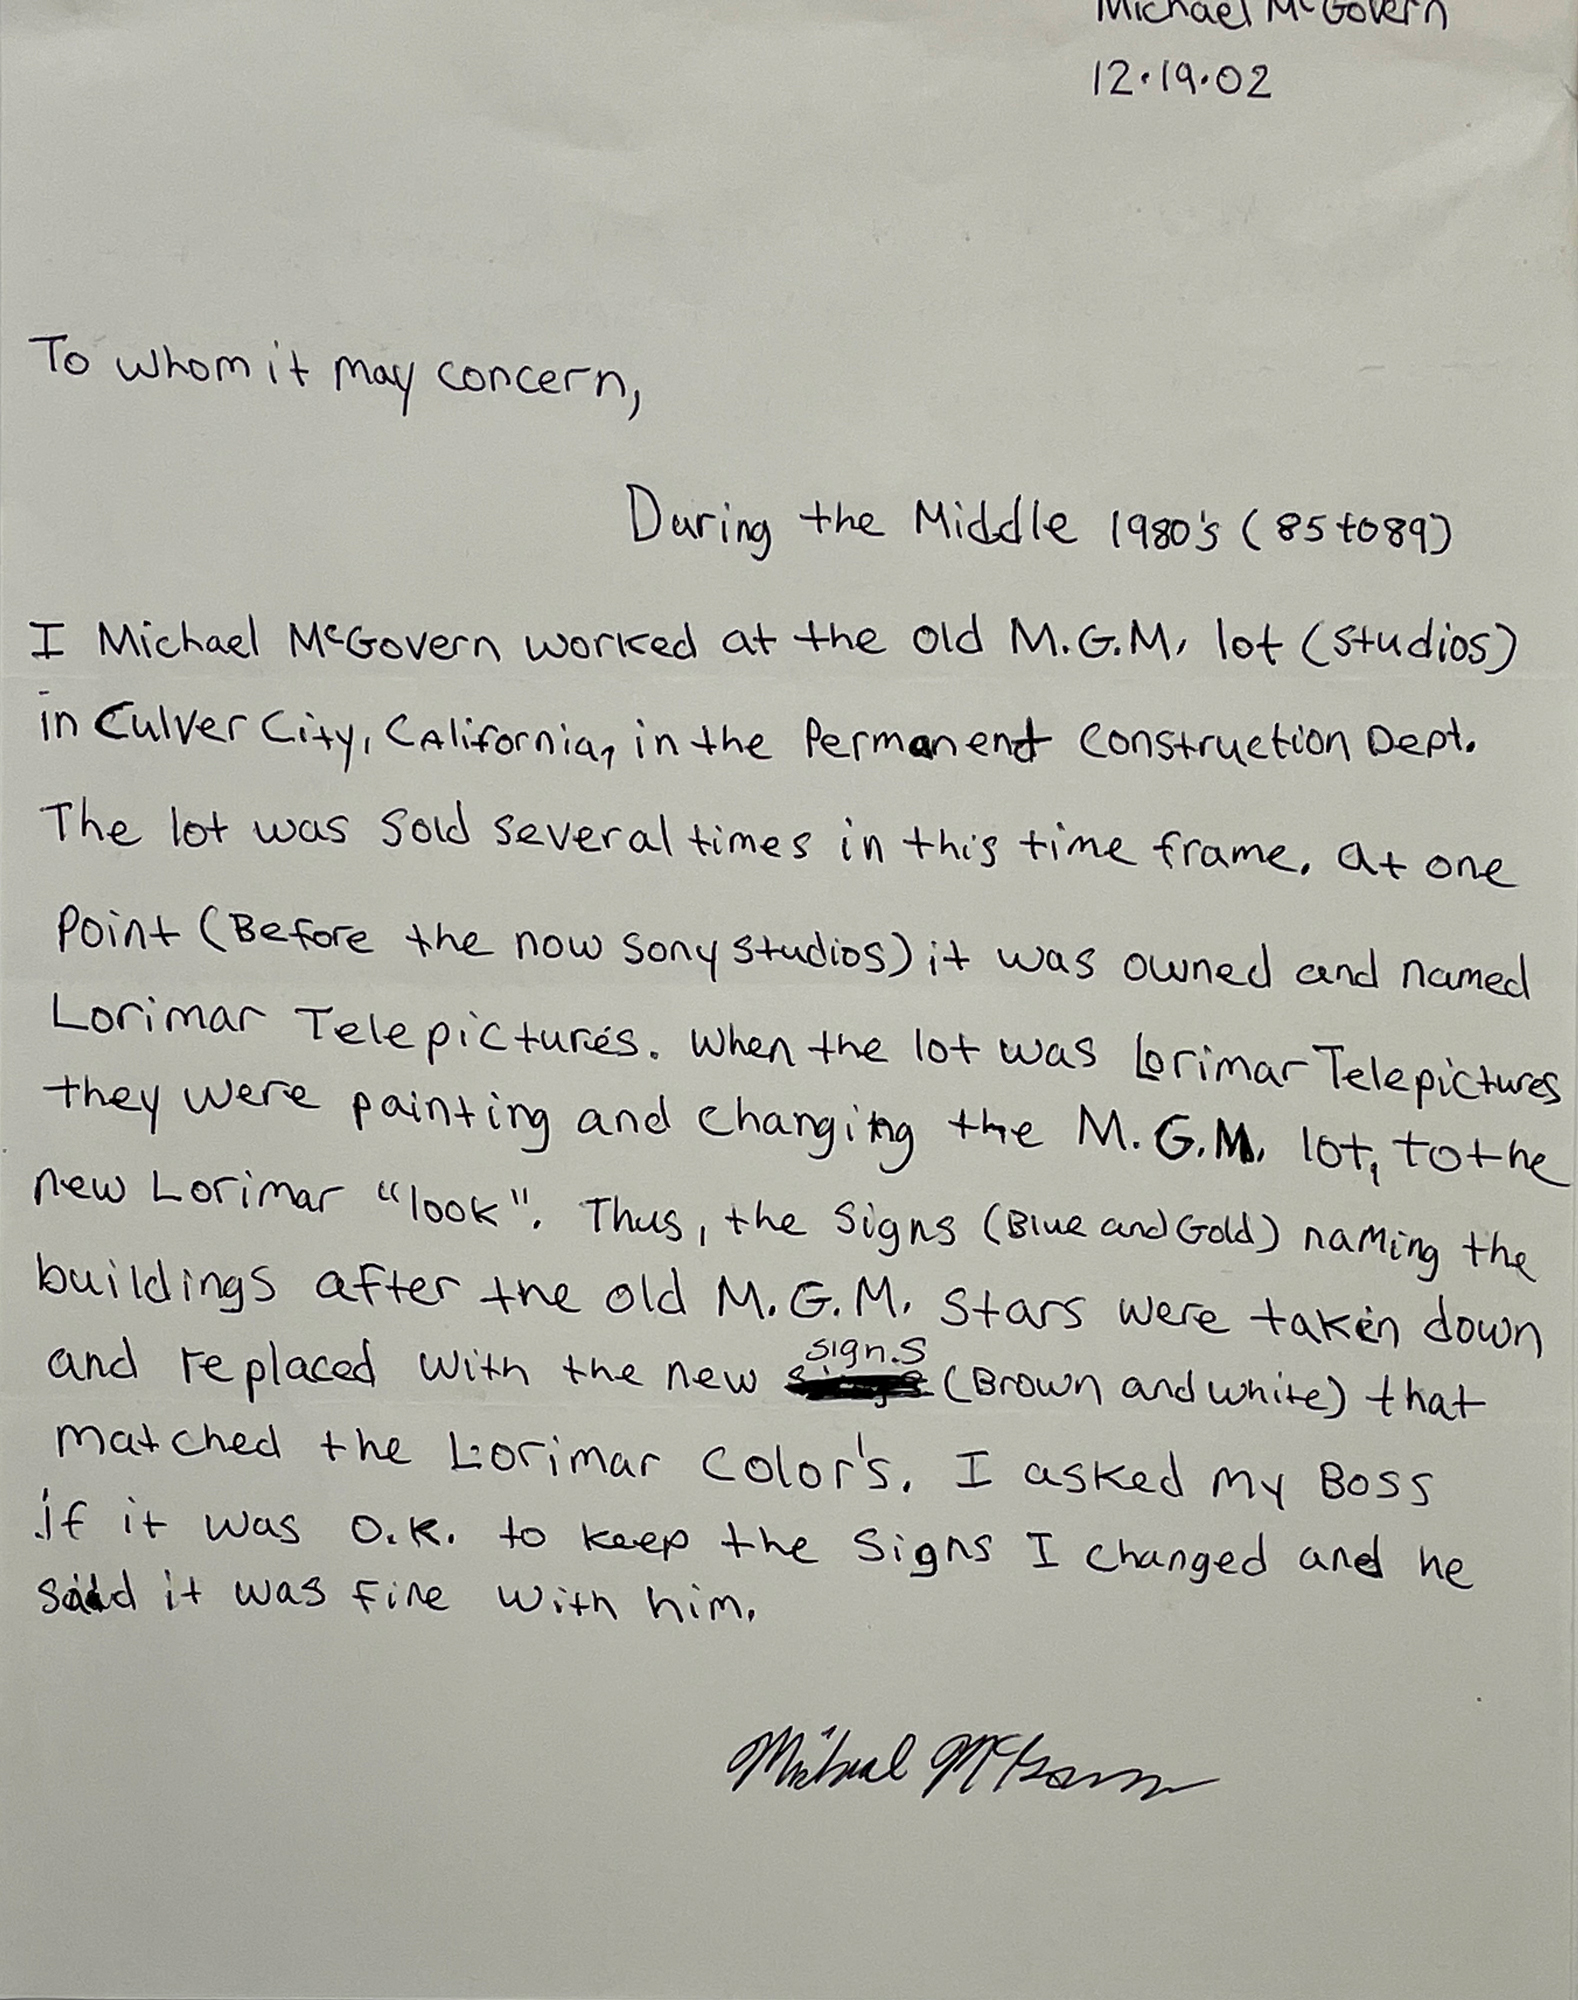 Michael McGovern
12.19.02
To whom it may concern,
During the Middle 1980's (85 to 89)
I Michael McGovern worked at the old M.G.M. lot (studios)
in Culver City, California, in the Permanent Construction Dept.
The lot was sold several times in this time frame. At one
Point (Before the now Sony Studios) it was owned and named
Lorimar Telepictures. When the lot was Lorimar Telepictures
they were painting and changing the M.G.M. lot, to the
new Lorimar "look". Thus, the Signs (Blue and Gold) naming the
buildings after the old M.G.M. Stars were taken down
and replaced with the new signs (Brown and white) that
matched the Lorimar Color's. I asked my Boss
if it was O.K. to keep the Signs I changed and he
said it was fine with him.
Michael McGovern